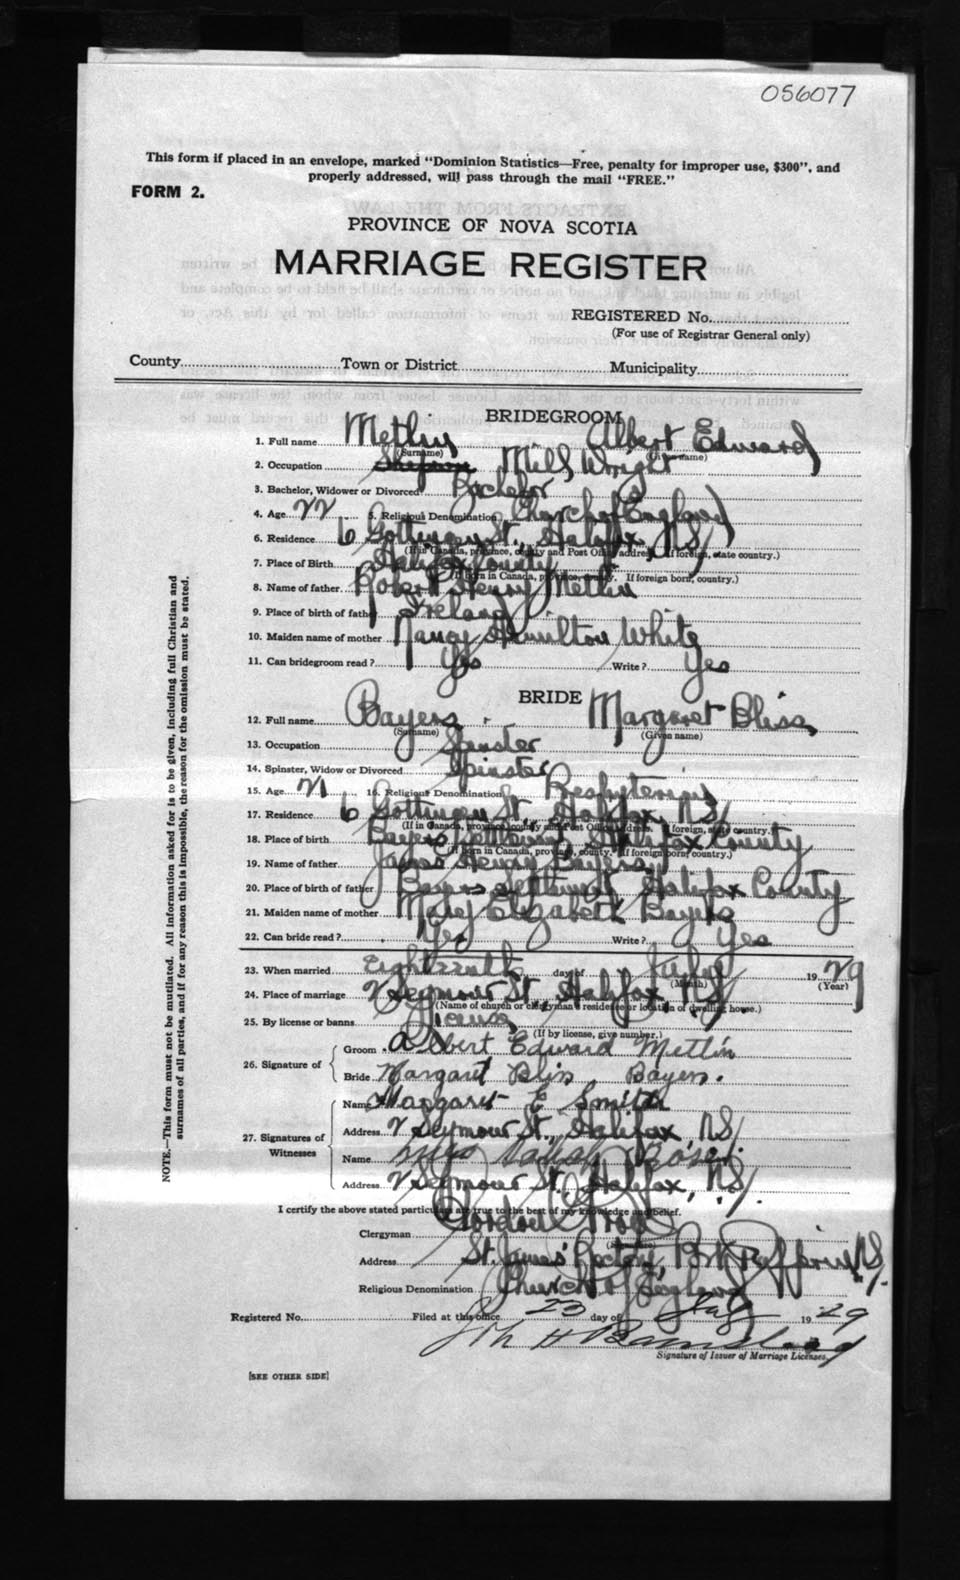 056077
This form if placed in an envelope, marked "Dominion Statistics—Free, penalty for improper use, $300", and
properly addressed, will pass through the mail "FREE."
FORM 2.
PROVINCE OF NOVA SCOTIA
MARRIAGE REGISTER
REGISTERED No.
(For use of Registrar General only)
County Town or District Municipality
BRIDEGROOM
1. Full name Metlin Albert Edward
(Surname) (Given name)
2. Occupation Mill Wright
3. Bachelor, Widower or Divorced Bachelor
4. Age 22 5. Religious Denomination Church of England
6. Residence 6 Gottingen St., Halifax, N.S.
(If in Canada, province, county and Post Office address. If foreign, state country.)
7. Place of Birth Halifax County
(If born in Canada, province, county. If foreign born, country.)
8. Name of father Robert Henry Metlin
9. Place of birth of father Ireland
10. Maiden name of mother Nancy Hamilton White
11. Can bridegroom read? Yes Write? Yes
BRIDE
12. Full name Bayers Margaret Bliss
(Surname) (Given name)
13. Occupation Spinster
14. Spinster, Widow or Divorced Spinster
15. Age 21 16. Religious Denomination Presbyterian
17. Residence 6 Gottingen St., Halifax, N.S.
(If in Canada, province, county and Post Office address. If foreign, state country.)
18. Place of birth Bayers Settlement Halifax County
(If born in Canada, province, county. If foreign born, country.)
19. Name of father James Henry Bayers
20. Place of birth of father Bayers Settlement Halifax County
21. Maiden name of mother Mary Elizabeth Bayers
22. Can bride read? Yes Write? Yes
23. When married Eighteenth day of July 1929
(Month) (Year)
24. Place of marriage 2 Seymour St., Halifax, N.S.
(Name of church or clergyman's residence or location of dwelling house.)
25. By license or banns License
(If by license, give number.)
26. Signature of
Groom Albert Edward Metlin
Bride Margaret Bliss Bayers.
27. Signatures of Witnesses
Name Margaret E Smith
Address 2 Seymour St., Halifax, N.S.
Name
Address 2 Seymour St. Halifax, N.S.
I certify the above stated particulars are true to the best of my knowledge and belief.
Clergyman
Address St. James' Rectory, Port Dufferin N.S.
Religious Denomination Church of England
Registered No. Filed at this office 23 day of July 1929
Signature of Issuer of Marriage Licenses.
[SEE OTHER SIDE]
NOTE.—This form must not be mutilated. All information asked for is to be given, including full Christian and
surnames of all parties, and if for any reason this is impossible, the reason for the omission must be stated.